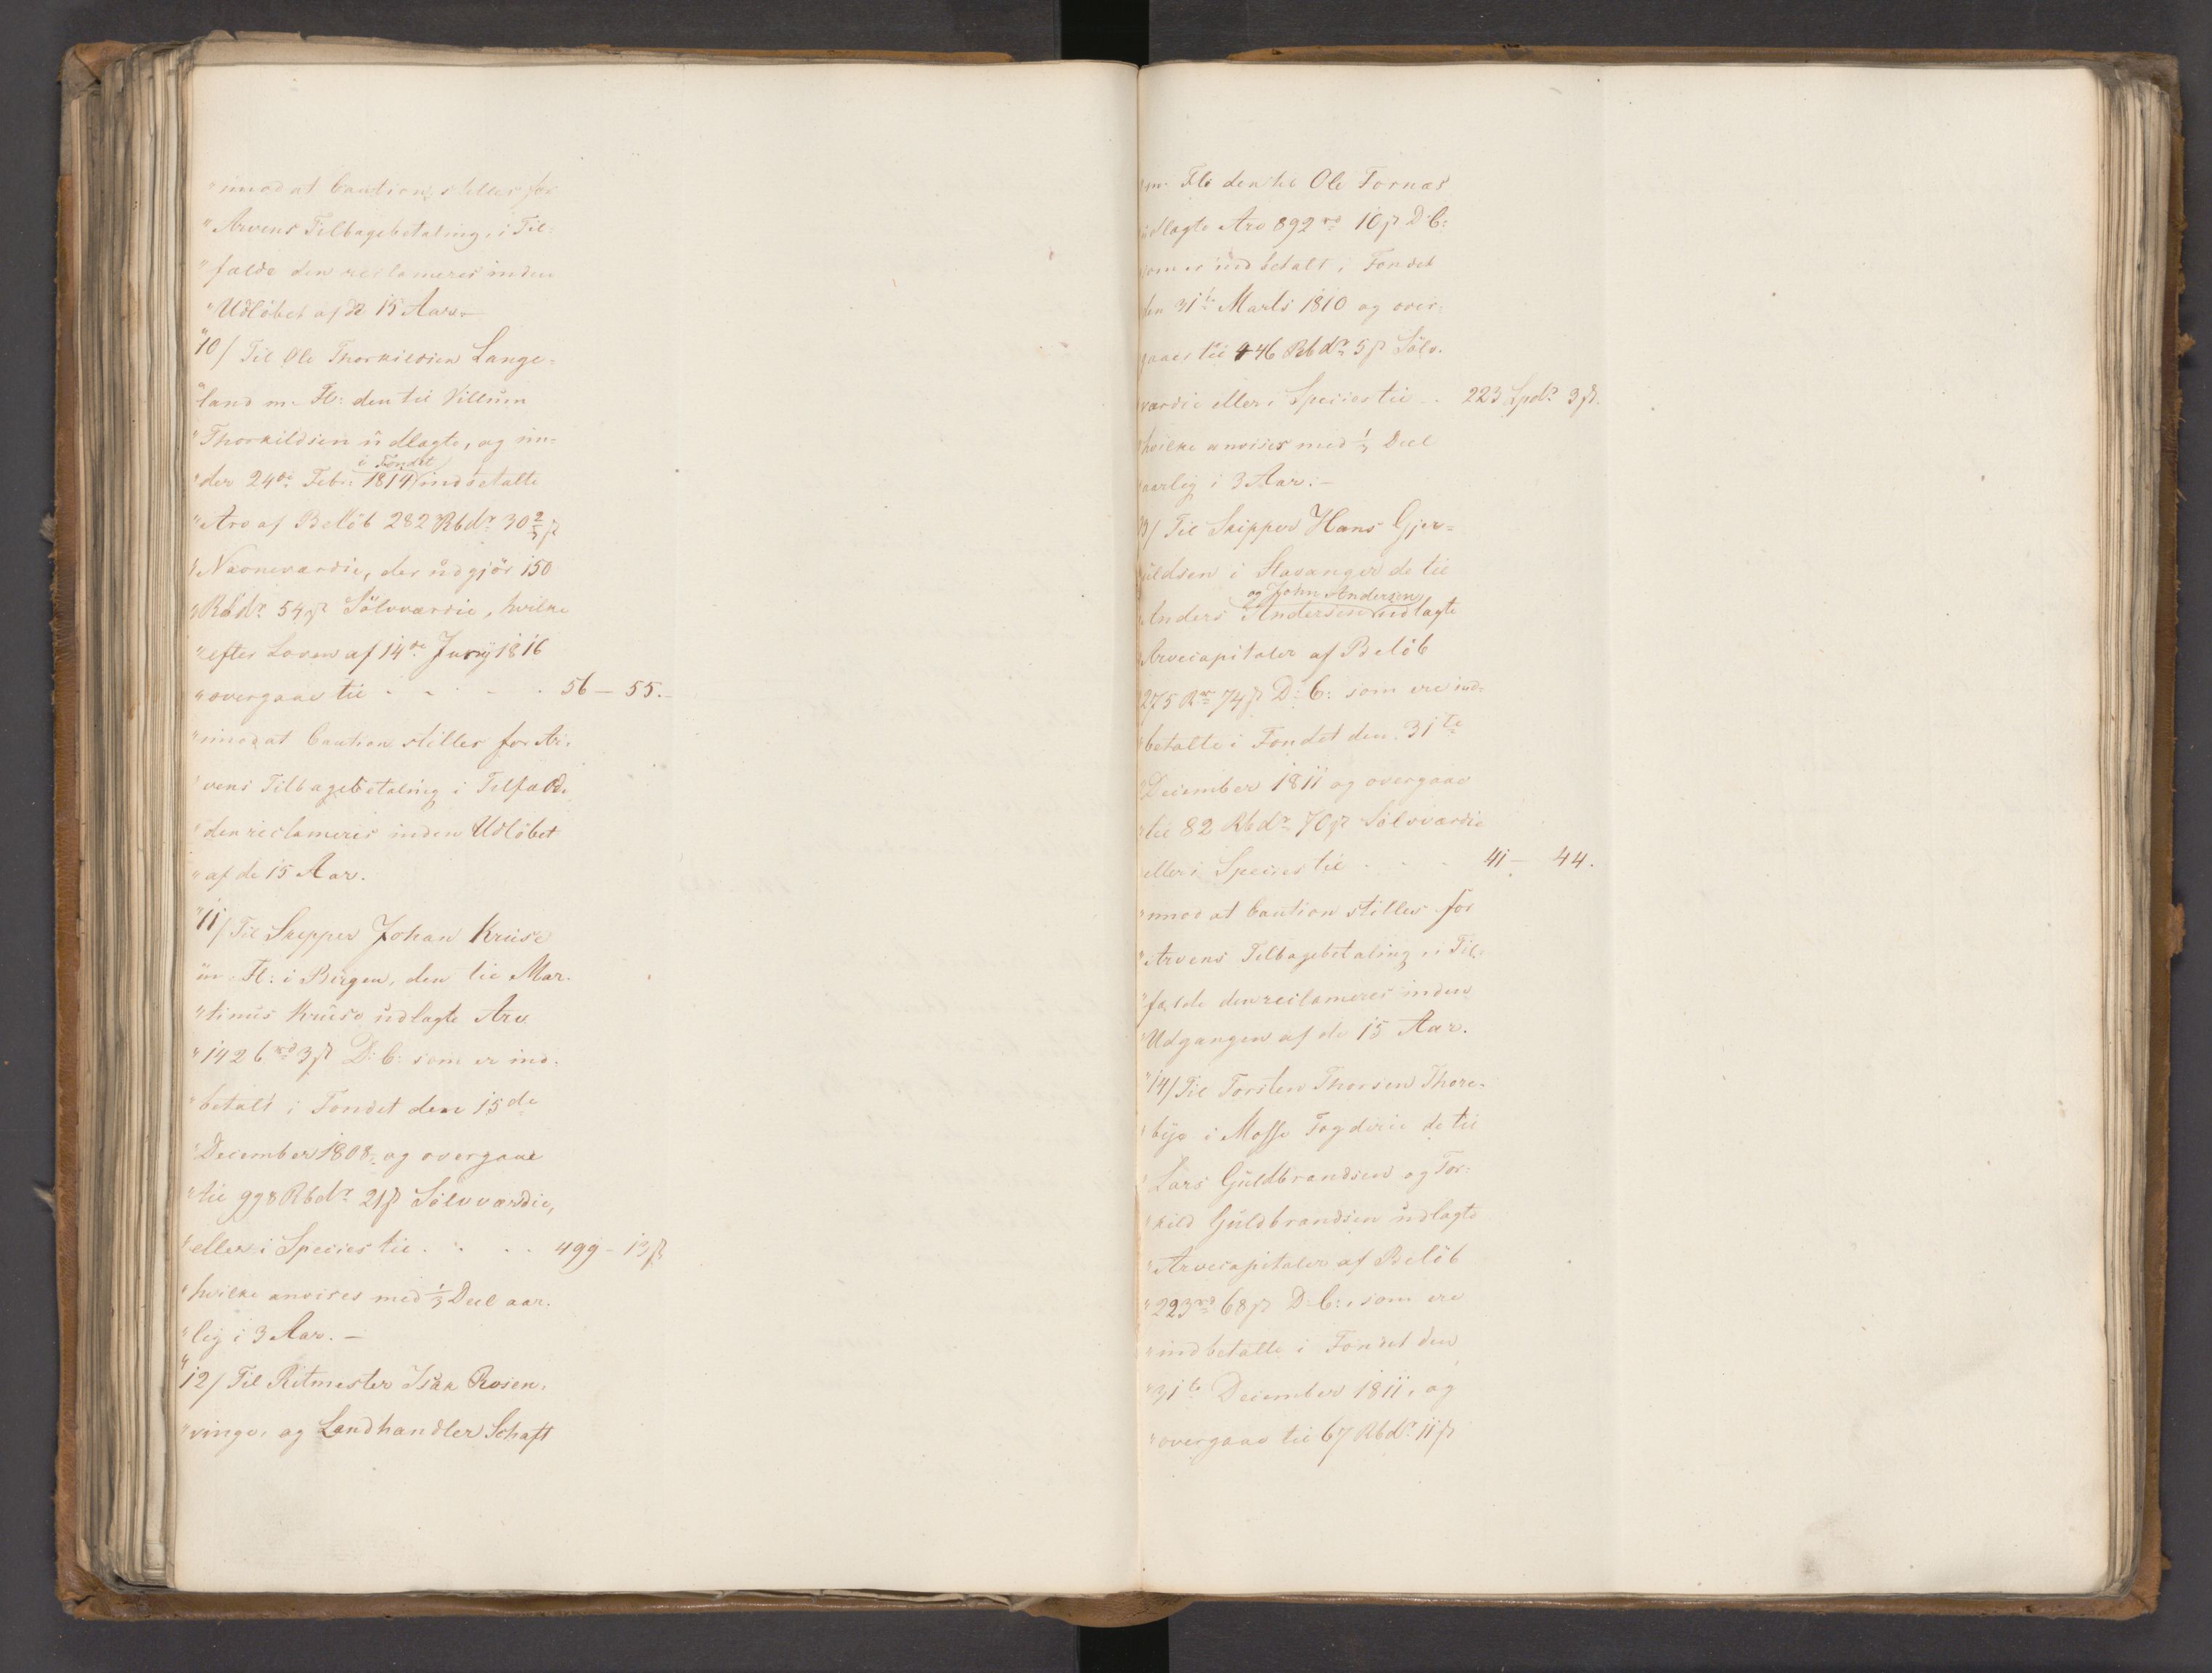 "imod at Caution stilles for
"Arvens Tilbagebetaling, i Til:
"fælde den reclameres inden
"Udløbet af de 15 Aar.—
"10/ Til Ole Thorkildsen Lange-
"land m. Fl: den til Villum
"Thorkildsen udlagte, og un-
i Fondet
"der 24de Febr: 1814 indbetalte
"Arv af Beløb 282 Rbdr 30 2/5 ß
"Navneværdie, der udgjør 150
"Rbdr 54 ß Sølvværdie, hvilke
"efter Loven af 14de Juny 1816
"overgaae til - - - - 56 — 55.-
"imod at Caution stilles for Ar-
"vens Tilbagebetaling i Tilfælde
"den reclameres inden Udløbet
"af de 15 Aar.
"11/ Til Skipper Johan Kruse
"m. Fl: i Bergen, den til Mar-
"tinus Kruse udlagte Arv
"1426 rd 3 ß D: C: som er ind-
"betalt i Fondet den 15de
"December 1808, og overgaae
"til 998 Rbdr 21 ß Sølvværdie,
"eller i Species til . . . . 499 - 13 ß
"hvilke anvises med 1/3 Deel aar-
"lig i 3 Aar. —
"12/ Til Ritmester Isak Rosen-
"vinge, og Landhandler Schaft
"m. Fl: den til Ole Tornæs
udlagte Arv 892 rd 10 ß D: C:
som er indbetalt i Fondet
den 31te Marts 1810 og over-
gaaer til 446 Rbdr 5 ß Sølv-
værdie eller i Species til - . 223 Spdr 3 ß.
"hvilke anvises med 1/3 Deel
"aarlig i 3 Aar: —
13/ Til Skipper Hans Gjer-
uldsen i Stavanger de til
og John Andersen
Anders Andersen udlagte
"Arvecapitaler af Beløb
"275 Rdr 74 ß D: C: som ere ind-
"betalte i Fondet den 31te
"December 1811 og overgaae
"til 82 Rbdr 70 ß Sølvværdie
eller i Species til . . . 41 — 44.
"imod at Caution stilles for
"Arvens Tilbagebetaling i Til-
"fælde den reclameres inden
"Udgangen af de 15 Aar.
"14/ Til Torsten Thorsen Thore-
"bye i Mosse Fogderie de til
"Lars Guldbrandsen og Tor-
"kild Guldbrandsen udlagte
"Arvecapitaler af Beløb
"223 rd 68 ß D: C:, som ere
"indbetalte i Fondet den
"31te December 1811, og
"overgaae til 67 Rbdr 11 ß